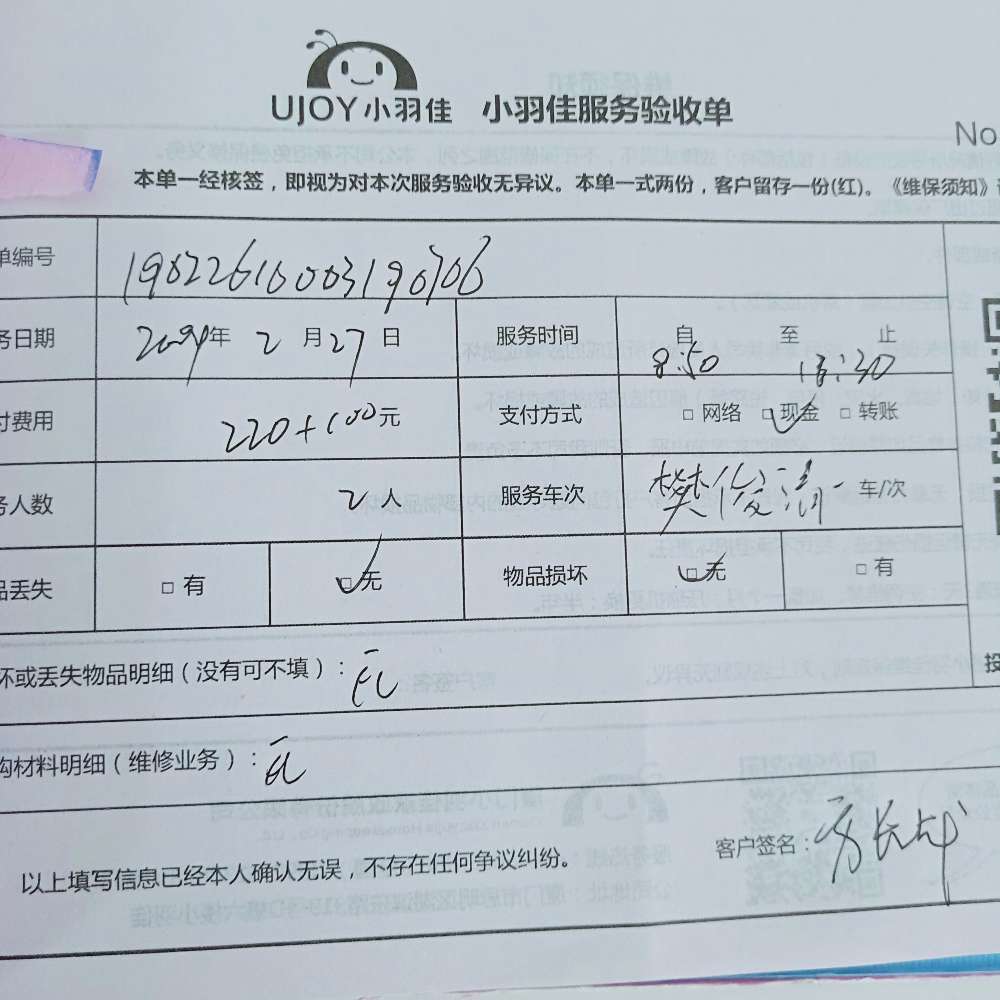 UJOY小羽佳 小羽佳服务验收单
No
本单一经核签，即视为对本次服务验收无异议。本单一式两份，客户留存一份(红)。《维保须知》
单编号 190226160003190706
务日期 2019年 2 月 27 日 服务时间 自 8:50 至 16:30 止
付费用 220+100元 支付方式 □ 网络 □ 现金 □ 转账
务人数 2人 服务车次 车/次
品丢失 □ 有 □ 无 物品损坏 □ 无 □ 有
坏或丢失物品明细（没有可不填）：无
购材料明细（维修业务）：无
投
以上填写信息已经本人确认无误，不存在任何争议纠纷。 客户签名：